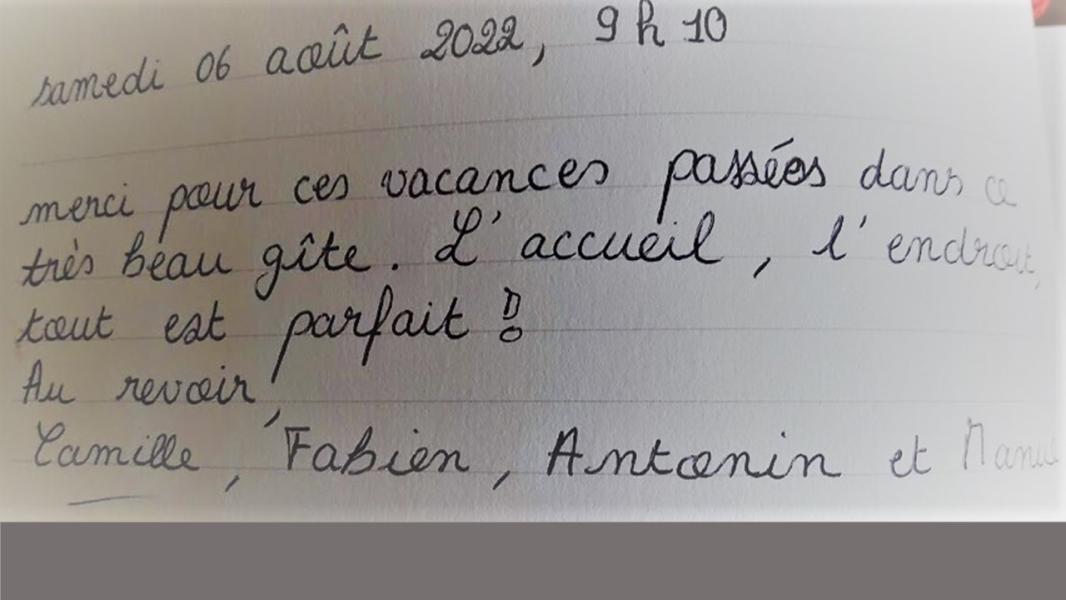 samedi 06 août 2022, 9 h 10
merci pour ces vacances passées dans ce
très beau gîte. L'accueil, l'endroit,
tout est parfait !
Au revoir,
Camille, Fabien, Antonin et